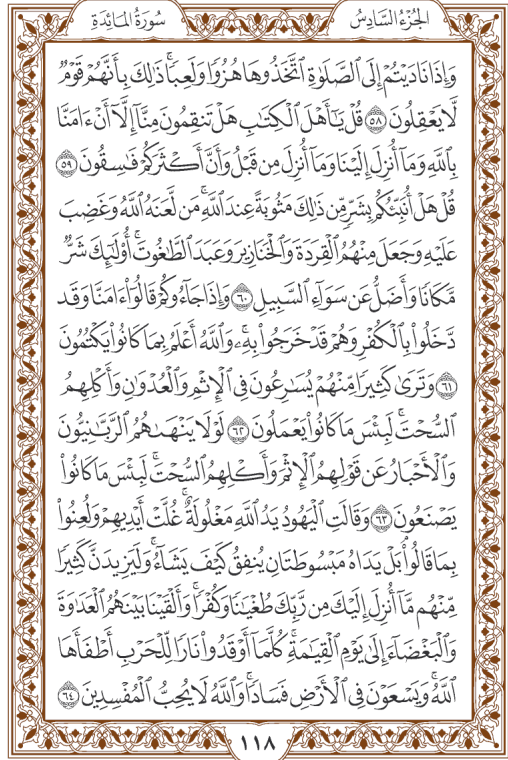 الجُزْءُ السَّادِسُ سُورَةُ المَائِدَةِ
وَإِذَا نَادَيْتُمْ إِلَى ٱلصَّلَوٰةِ ٱتَّخَذُوهَا هُزُوًا وَلَعِبًا ۚ ذَٰلِكَ بِأَنَّهُمْ قَوْمٌ
لَّا يَعْقِلُونَ ٥٨ قُلْ يَٰٓأَهْلَ ٱلْكِتَٰبِ هَلْ تَنقِمُونَ مِنَّآ إِلَّآ أَنْ ءَامَنَّا
بِٱللَّهِ وَمَآ أُنزِلَ إِلَيْنَا وَمَآ أُنزِلَ مِن قَبْلُ وَأَنَّ أَكْثَرَكُمْ فَٰسِقُونَ ٥٩
قُلْ هَلْ أُنَبِّئُكُم بِشَرٍّ مِّن ذَٰلِكَ مَثُوبَةً عِندَ ٱللَّهِ ۚ مَن لَّعَنَهُ ٱللَّهُ وَغَضِبَ
عَلَيْهِ وَجَعَلَ مِنْهُمُ ٱلْقِرَدَةَ وَٱلْخَنَازِيرَ وَعَبَدَ ٱلطَّٰغُوتَ ۚ أُو۟لَٰٓئِكَ شَرٌّ
مَّكَانًا وَأَضَلُّ عَن سَوَآءِ ٱلسَّبِيلِ ٦٠ وَإِذَا جَآءُوكُمْ قَالُوٓا۟ ءَامَنَّا وَقَد
دَّخَلُوا۟ بِٱلْكُفْرِ وَهُمْ قَدْ خَرَجُوا۟ بِهِۦ ۚ وَٱللَّهُ أَعْلَمُ بِمَا كَانُوا۟ يَكْتُمُونَ
٦١ وَتَرَىٰ كَثِيرًا مِّنْهُمْ يُسَٰرِعُونَ فِى ٱلْإِثْمِ وَٱلْعُدْوَٰنِ وَأَكْلِهِمُ
ٱلسُّحْتَ ۚ لَبِئْسَ مَا كَانُوا۟ يَعْمَلُونَ ٦٢ لَوْلَا يَنْهَىٰهُمُ ٱلرَّبَّٰنِيُّونَ
وَٱلْأَحْبَارُ عَن قَوْلِهِمُ ٱلْإِثْمَ وَأَكْلِهِمُ ٱلسُّحْتَ ۚ لَبِئْسَ مَا كَانُوا۟
يَصْنَعُونَ ٦٣ وَقَالَتِ ٱلْيَهُودُ يَدُ ٱللَّهِ مَغْلُولَةٌ ۚ غُلَّتْ أَيْدِيهِمْ وَلُعِنُوا۟
بِمَا قَالُوا۟ ۘ بَلْ يَدَاهُ مَبْسُوطَتَانِ يُنفِقُ كَيْفَ يَشَآءُ ۚ وَلَيَزِيدَنَّ كَثِيرًا
مِّنْهُم مَّآ أُنزِلَ إِلَيْكَ مِن رَّبِّكَ طُغْيَٰنًا وَكُفْرًا ۚ وَأَلْقَيْنَا بَيْنَهُمُ ٱلْعَدَٰوَةَ
وَٱلْبَغْضَآءَ إِلَىٰ يَوْمِ ٱلْقِيَٰمَةِ ۚ كُلَّمَآ أَوْقَدُوا۟ نَارًا لِّلْحَرْبِ أَطْفَأَهَا
ٱللَّهُ ۚ وَيَسْعَوْنَ فِى ٱلْأَرْضِ فَسَادًا ۚ وَٱللَّهُ لَا يُحِبُّ ٱلْمُفْسِدِينَ ٦٤
١١٨